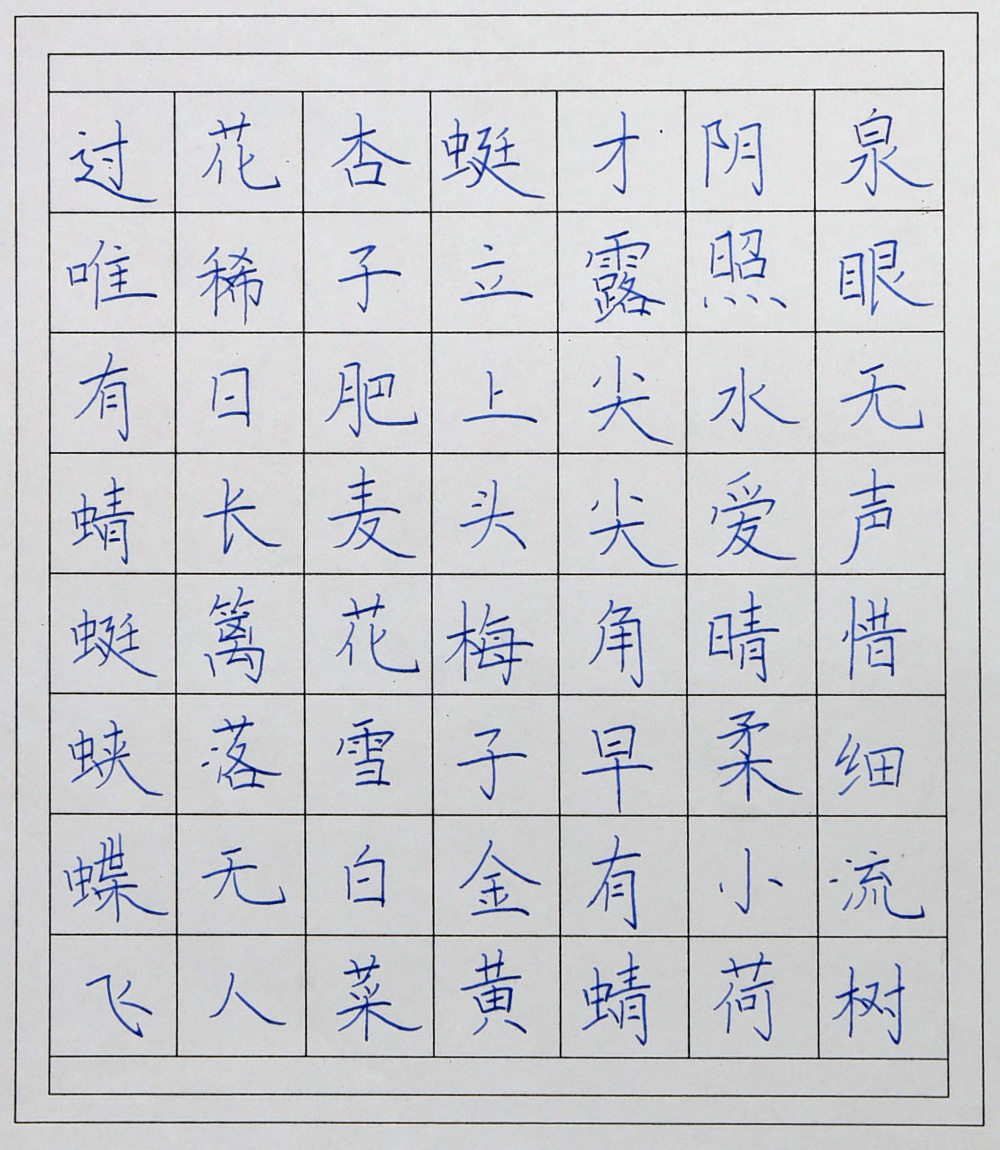 泉眼无声惜细流树
阴照水爱晴柔小荷
才露尖尖角早有蜻
蜓立上头梅子金黄
杏子肥麦花雪白菜
花稀日长篱落无人
过唯有蜻蜓蛱蝶飞